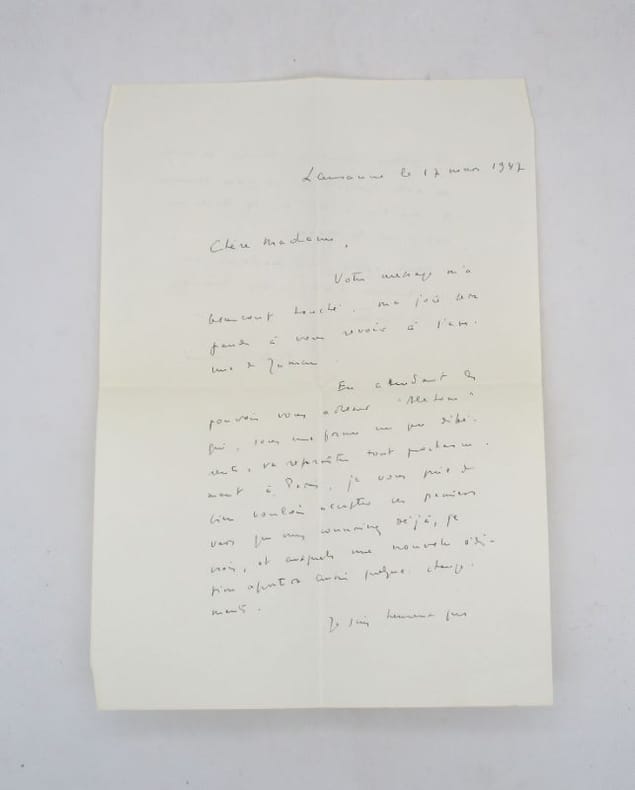 Lausanne le 17 mars 1947
Chère Madame,
Votre message m'a
beaucoup touché. ma joie sera
grande à vous revoir à
En attendant de
pouvoir vous adresser
qui, sous une forme un peu diffé-
rente, va reparaître tout prochaine-
ment à Paris, je vous prie de
bien vouloir accepter ces premiers
vers que vous connaissez déjà, je
crois, et auxquels une nouvelle édi-
tion apportera aussi quelques change-
ments.
Je suis heureux que